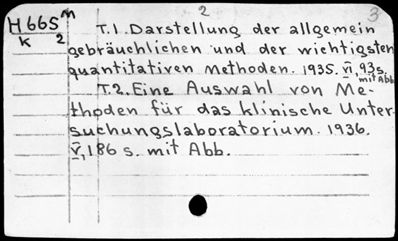 2 3
H 665 m T.1. Darstellung der allgemein
k 2 gebräuchlichen und der wichtigsten
quantitativen Methoden. 1935. VI, 93 s.
mit Abb.
T.2. Eine Auswahl von Me-
thoden für das klinische Unter-
suchungslaboratorium. 1936.
V, 186 s. mit Abb.